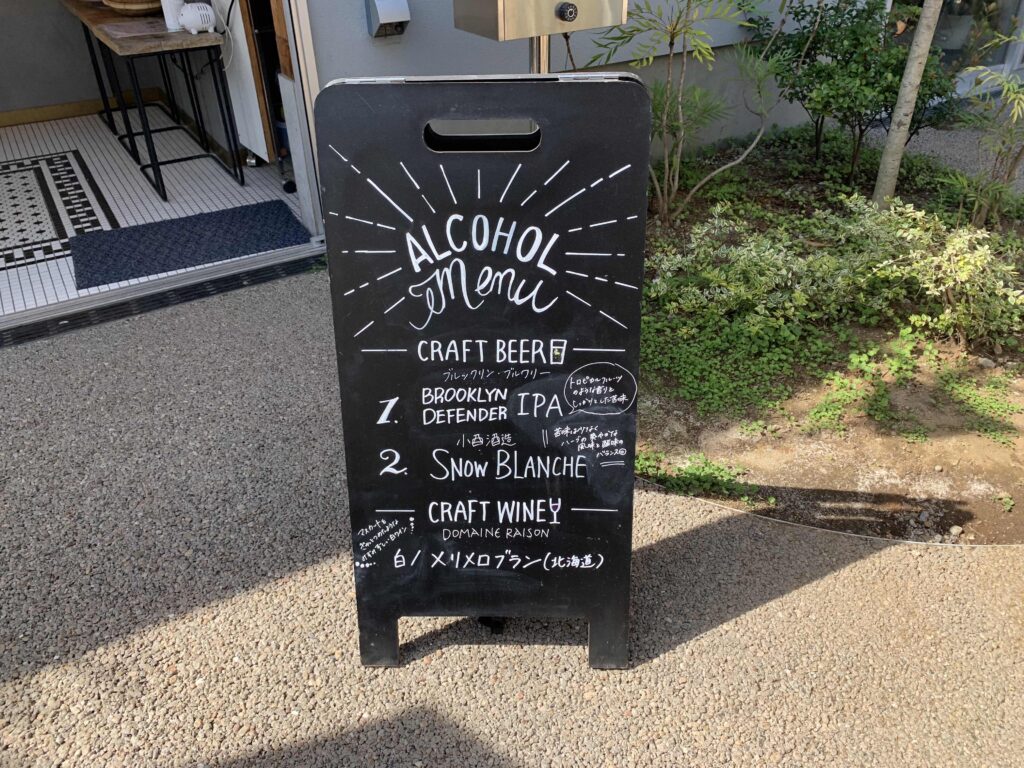 ALCOHOL
Menu
CRAFT BEER
ブルックリン・ブルワリー
1. BROOKLYN
DEFENDER IPA
トロピカルフルーツ
のような香りと
しっかりとした苦味
小西酒造
2. SNOW BLANCHE
苦味はりよく
ハーブの爽やかな
風味と酸味の
バランス
CRAFT WINE
DOMAINE RAISON
マスカットを
白ワイン
白 / メリメロブラン(北海道)